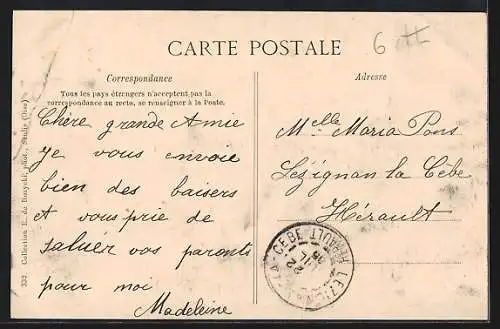 6
CARTE POSTALE
Correspondance
Tous les pays étrangers n'acceptent pas la
correspondance au recto, se renseigner à la Poste.
Chère grande Amie
je vous envoie
bien des baisers
et vous prie de
saluer vos parents
pour moi
Madeleine
Adresse
Melle Maria Pons
Lézignan la Cèbe
Hérault
LA-CEBE
HERAULT
22
332 Collection E. de